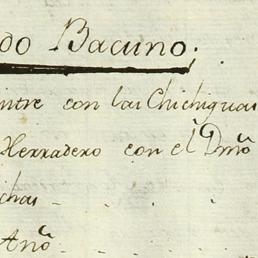 do Bacuno,
ntre con las Chichiguas
Herradero con el Dmõ
chas
Año